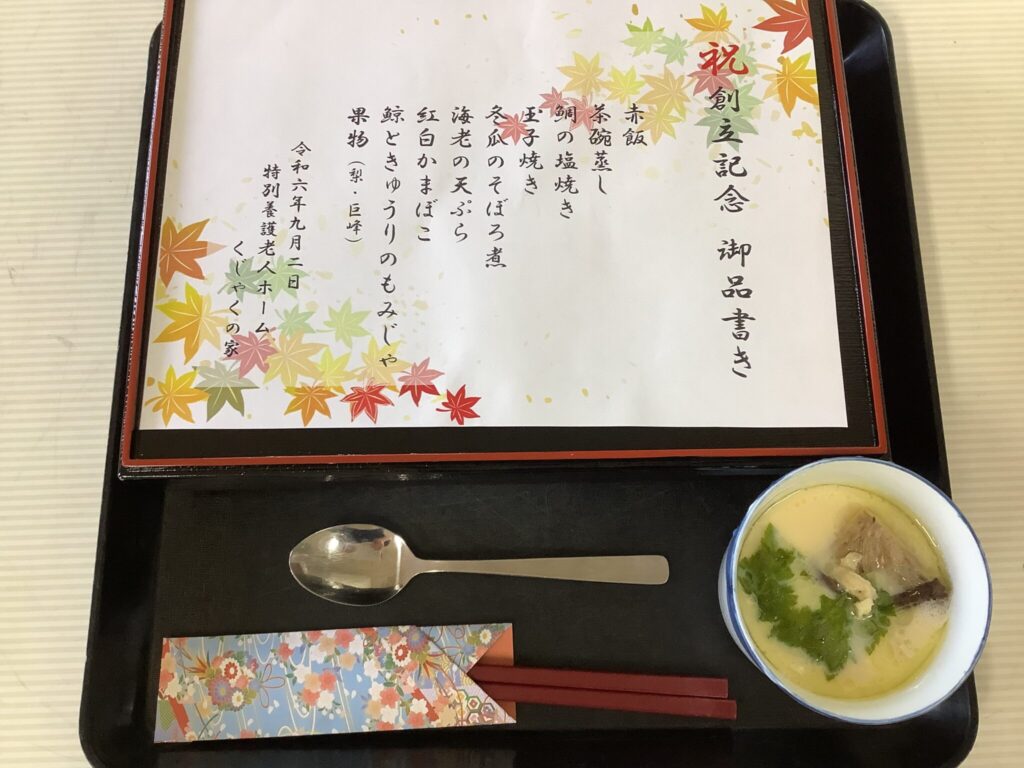 祝創立記念 御品書き
赤飯
茶碗蒸し
鯛の塩焼き
玉子焼き
冬瓜のそぼろ煮
海老の天ぷら
紅白かまぼこ
鯨ときゅうりのもみじゃ
果物（梨・巨峰）
令和六年九月二日
特別養護老人ホーム
くじゃくの家